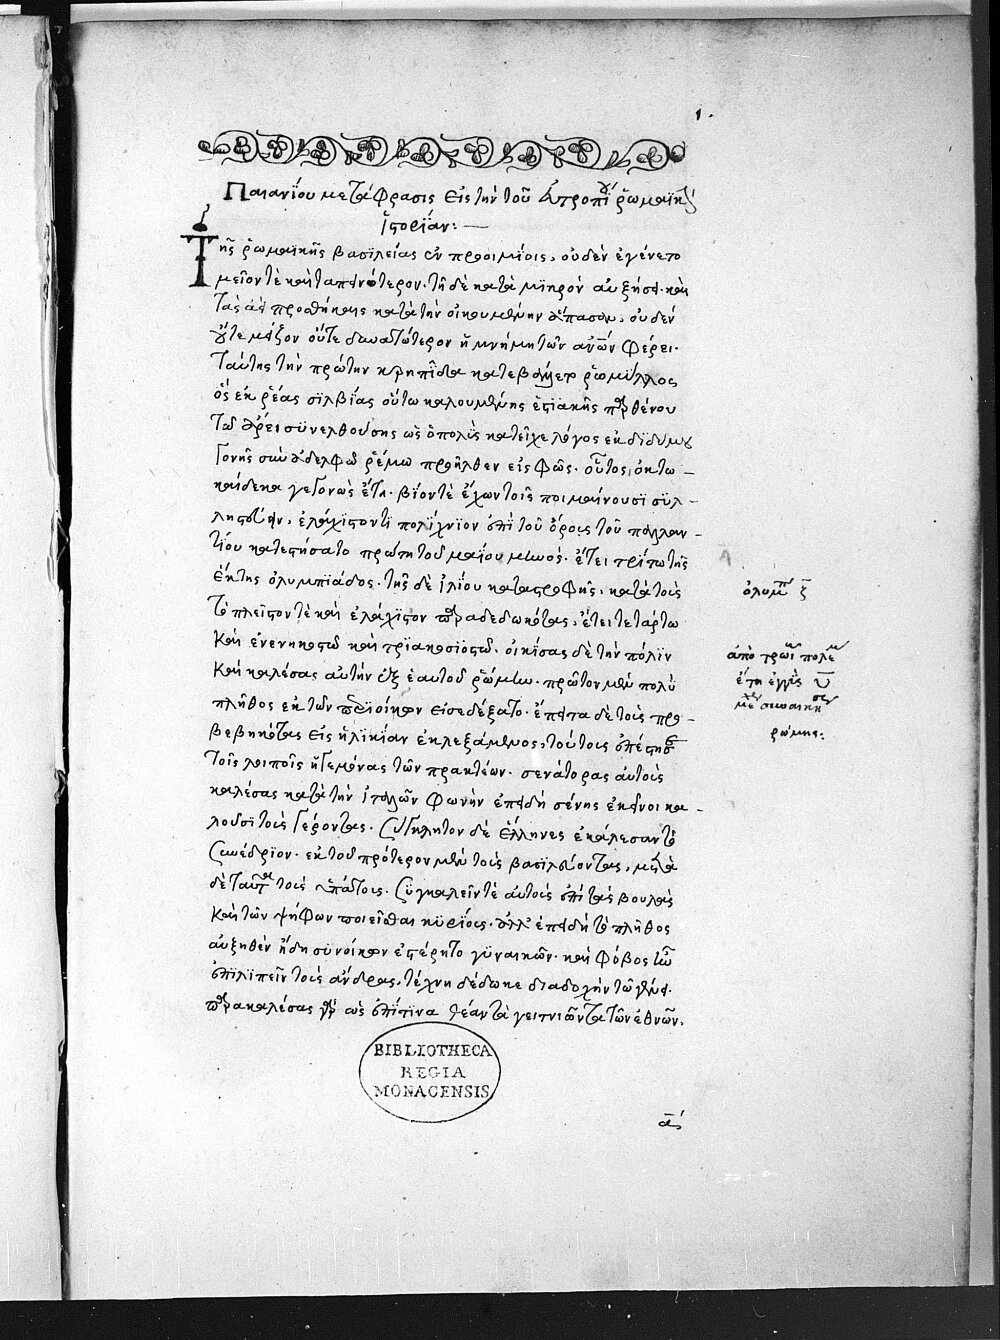 1.
Παιανίου μετάφρασις εἰς τὴν τοῦ Εὐτροπίου ῥωμαϊκὴν
ἱστορίαν:—
Τῆς ῥωμαϊκῆς βασιλείας ἐν προοιμίοις, οὐδὲν ἐγένετο
μεῖόν τε καὶ ταπεινότερον· τῇ δὲ κατὰ μικρὸν αὐξήσει καὶ
ταῖς προσθήκαις κατὰ τὴν οἰκουμένην ἅπασαν, οὐδὲν
οὔτε μεῖζον οὔτε δυνατώτερον ἡ μνήμη τῶν ἀνῶν φέρει.
ταύτης τὴν πρώτην κρηπῖδα κατεβάλλετο ῥωμύλλος
ὃς ἐκ ῥέας σιλβίας οὕτω καλουμένης ἑστιακῆς παρθένου
τῷ ἄρει συνελθούσης ὡς ὁ πολὺς κατεῖχε λόγος ἐκ διδύμου
γονῆς σὺν ἀδελφῷ ῥέμῳ προῆλθεν εἰς φῶς. οὗτος, ὀκτω–
καίδεκα γεγονὼς ἔτη. βίον τὲ ἔχων τοῖς ποιμαίνουσι συλ–
ληστεύειν, ἐλάχιστόν τι πολίχνιον ἐπὶ τοῦ ὄρους τοῦ παλλαν–
τίου κατεστήσατο πρώτῃ τοῦ μαΐου μηνός. ἔτει τρίτῳ τῆς
ἕκτης ὀλυμπιάδος. τῆς δὲ ἰλίου καταστροφῆς, κατὰ τοὺς
τὸ πλεῖστον τὲ καὶ ἐλάχιστον παραδεδωκότας, ἔτει τετάρτῳ
καὶ ἐνενηκοστῷ καὶ τριακοσιοστῷ. οἰκίσας δὲ τὴν πόλιν
καὶ καλέσας αὐτὴν ἐξ ἑαυτοῦ ῥώμην. πρῶτον μὲν πολὺ
πλῆθος ἐκ τῶν περιοίκων εἰσεδέξατο. ἔπειτα δὲ τοὺς προ–
βεβηκότας εἰς ἡλικίαν ἐκλεξάμενος, τούτους ἐπέστησε
τοῖς λοιποῖς ἡγεμόνας τῶν πρακτέων. σενάτορας αὐτοὺς
καλέσας κατὰ τὴν ἰταλῶν φωνὴν ἐπειδὴ σένης ἐκεῖνοι κα–
λοῦσι τοὺς γέροντας. σύγκλητον δὲ ἕλληνες ἐκάλεσαν τὸ
συνέδριον. ἐκ τοῦ πρότερον μὲν τοὺς βασιλεύοντας, μετὰ
δὲ ταῦτα τοὺς ὑπάτους. συγκαλεῖν τὲ αὐτοὺς ἐπὶ τὰς βουλὰς
καὶ τῶν ψήφων ποιεῖσθαι κυρίους. ἀλλ' ἐπειδὴ τὸ πλῆθος
αὐξηθὲν ἤδη συνοίκων ἐστέρητο γυναικῶν. καὶ φόβος ἦν
ἐπιλιπεῖν τοὺς ἄνδρας, τέχνῃ δέδωκε διαδοχὴν τῷ γένει.
παρακαλέσας γὰρ ὡς ἐπί τινα θέαν τὰ γειτνιῶντα τῶν ἐθνῶν,
ὀλυμπ ξ
ἀπὸ τρωι πολε
ἔτη ἐγγὺς ῡ
μεχ συνοικησε
ρώμης:
BIBLIOTHECA
REGIA
MONACENSIS